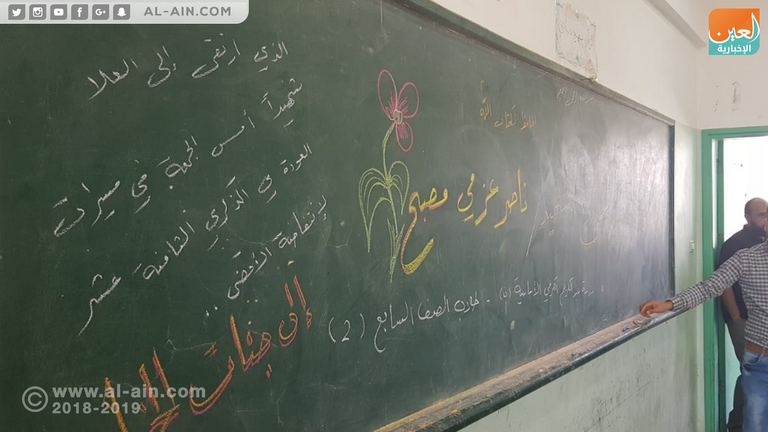 AL-AIN.COM
العين
الإخبارية
الذي ارتقى إلى العلا
شهيداً أمس الجمعة في مسيرات
العودة في الذكرى الثامنة عشر
لإنتفاضة الأقصى ..
إلى جنات
لكتاب الله
ناصر عزمي مصبح
الأساسية (م) - طلاب الصف السابع (2)
© www.al-ain.com
2018-2019